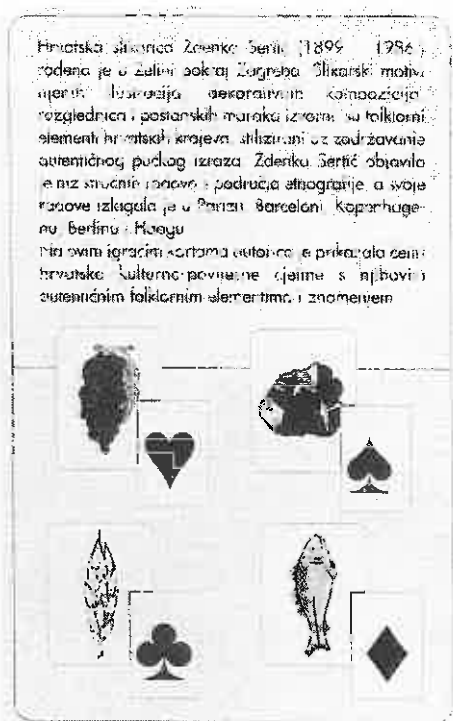 Hrvatska slikarica Zdenka Sertić (1899 1986.)
rođena je u Zelini pokraj Zagreba. Slikarski motivi
njenih ilustracija dekorativnih kompozicija
razglednica i poštanskih maraka izvorni su folklorni
elementi hrvatskih krajeva, stilizirani uz zadržavanje
autentičnog pučkog izraza. Zdenka Sertić objavila
je niz stručnih radova s područja etnografije, a svoje
radove izlagala je u Parizu, Barceloni, Kopenhage-
nu, Berlinu i Haagu
Na ovim igraćim kartama autorica je prikazala
hrvatske kulturno-povijesne cjeline s njihovim
autentičnim folklornim elementima i znamenjem